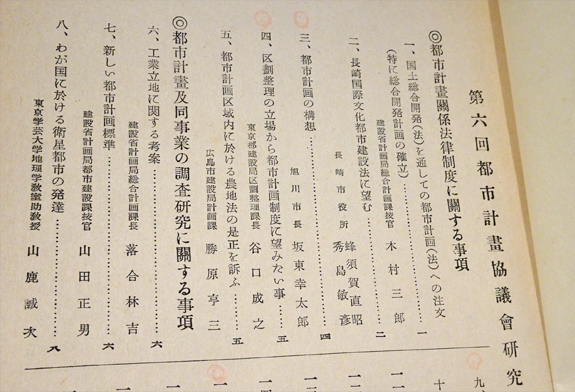 第六回都市計畫協議會研究
◎都市計畫關係法律制度に關する事項
一、国土総合開発(法)を通しての都市計画(法)への注文
(特に総合開発計画の確立)
建設省計画局総合計画課技官 木村三郎 一
二、長崎国際文化都市建設法に望む
長崎市役所 蜂須賀直昭
秀島敏彦 二
三、都市計画の構想
旭川市長 坂東幸太郎 四
四、区劃整理の立場から都市計画制度に望みたい事
東京都建設局区劃整理課長 谷口成之 五
五、都市計画区域内に於ける農地法の是正を訴ふ
広島市建設局計画課 勝原亨三 五
◎都市計畫及同事業の調査研究に關する事項
六、工業立地に関する考案
建設省計画局総合計画課長 落合林吉 六
七、新しい都市計画標準
建設省計画局都市建設課技官 山田正男 六
八、わが国に於ける衛星都市の発達
東京学芸大学地理学教室助教授 山鹿誠次 九
九、
十